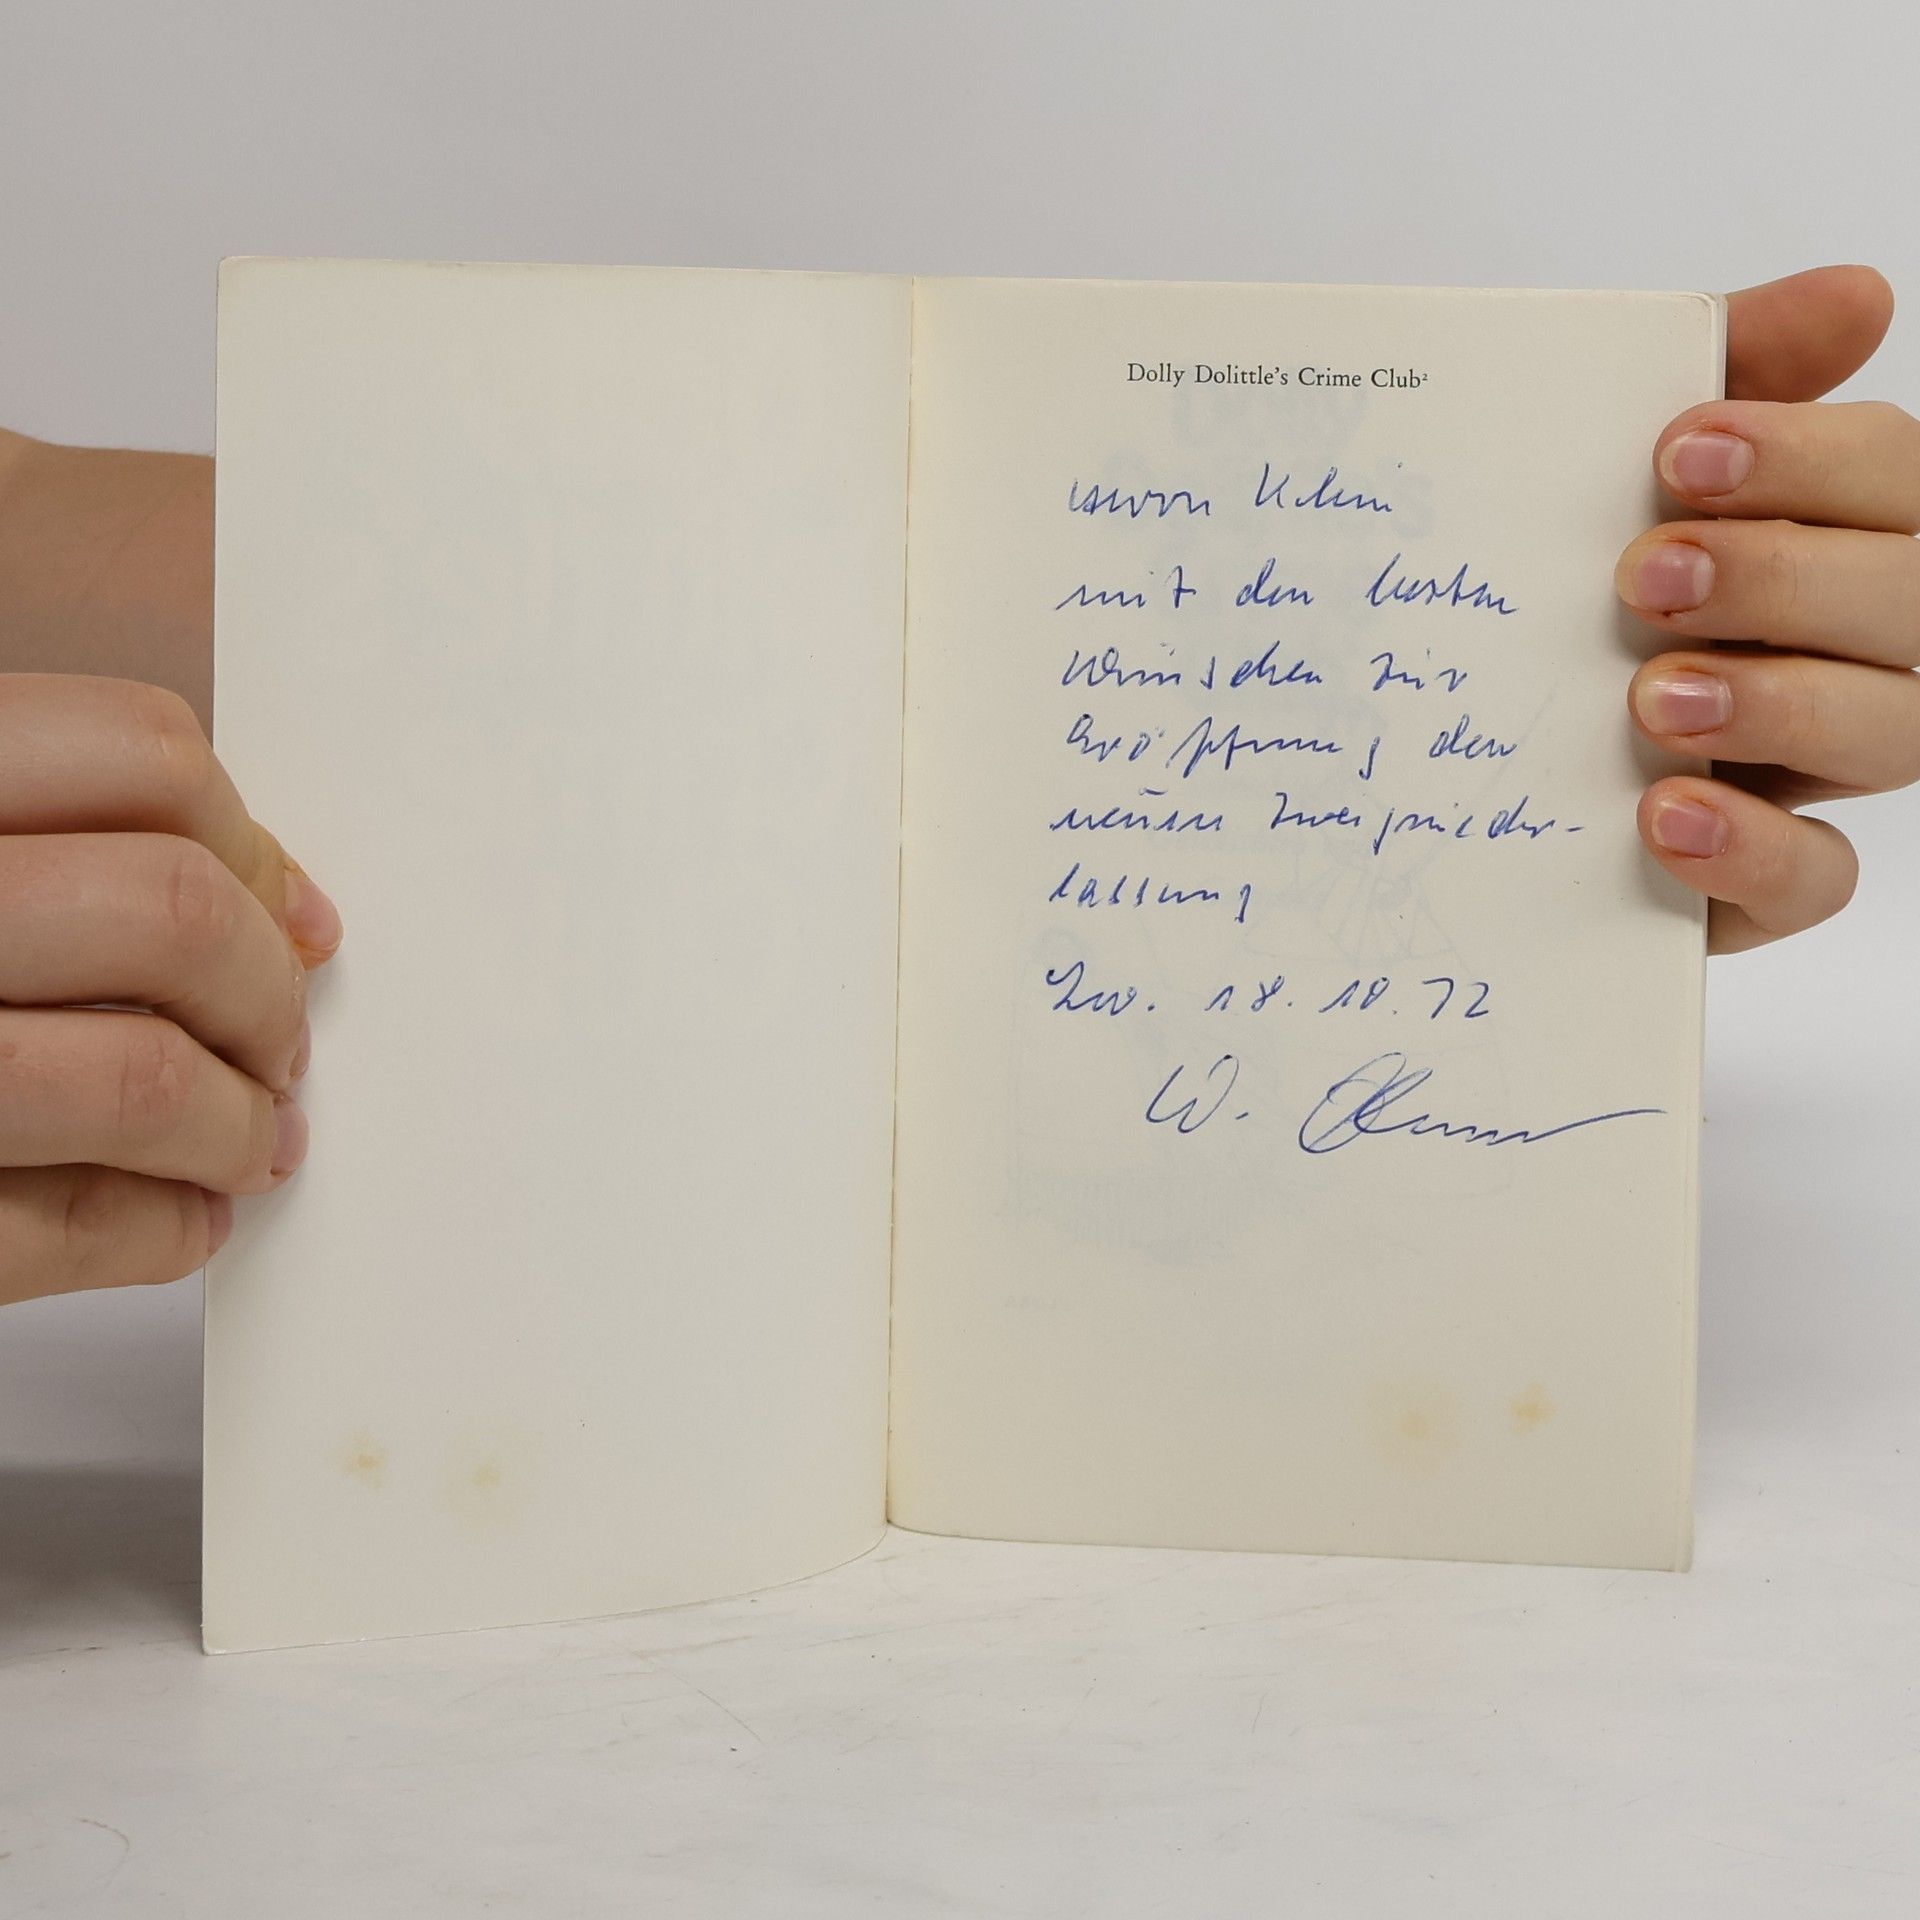 Dolly Dolittle's Crime Club²
Herrn Klein
mit den besten
Wünschen zur
Eröffnung der
neuen Zweignieder-
lassung
18.10.72
W.